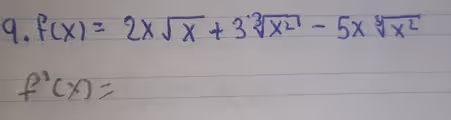 9. f(x) = 2x√x + 3∛x² - 5x∛x²
f'(x) =